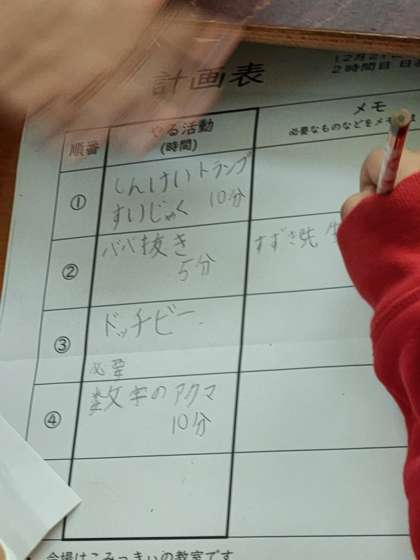 計画表
12月2
2時間目
順番
やる活動
(時間)
メモ
必要なものなどをメモ
①
しんけいトランプ
すいじゃく 10分
②
ババ抜き
5分
すずき先生
③
ドッチビー
必要
④
数字のアクマ
10分
会場はこみっきぃの教室です